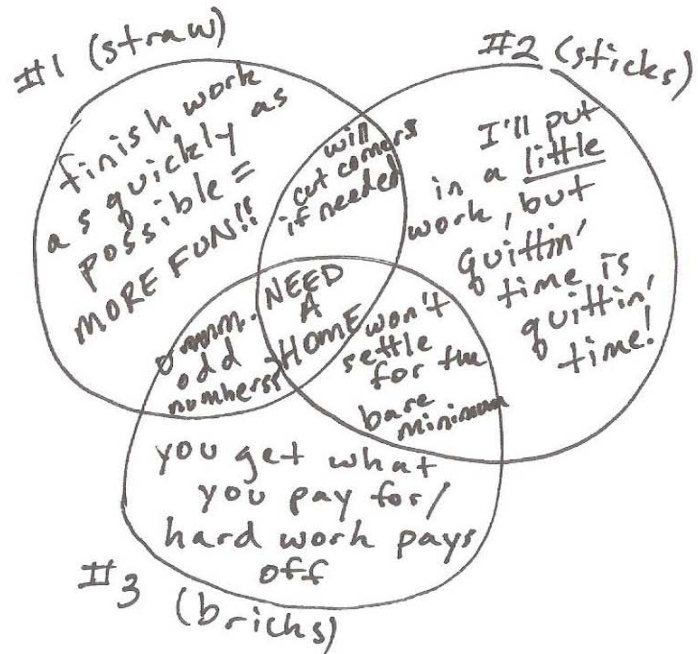 #1 (straw)
finish work
as quickly as
possible =
MORE FUN!!
will
cut corners
if needed
#2 (sticks)
I'll put
in a little
work, but
quittin'
time is
quittin'
time!
NEED
A
HOME
ummm.
odd
numbers?
won't
settle
for the
bare
minimum
you get what
you pay for/
hard work pays
off
#3 (bricks)